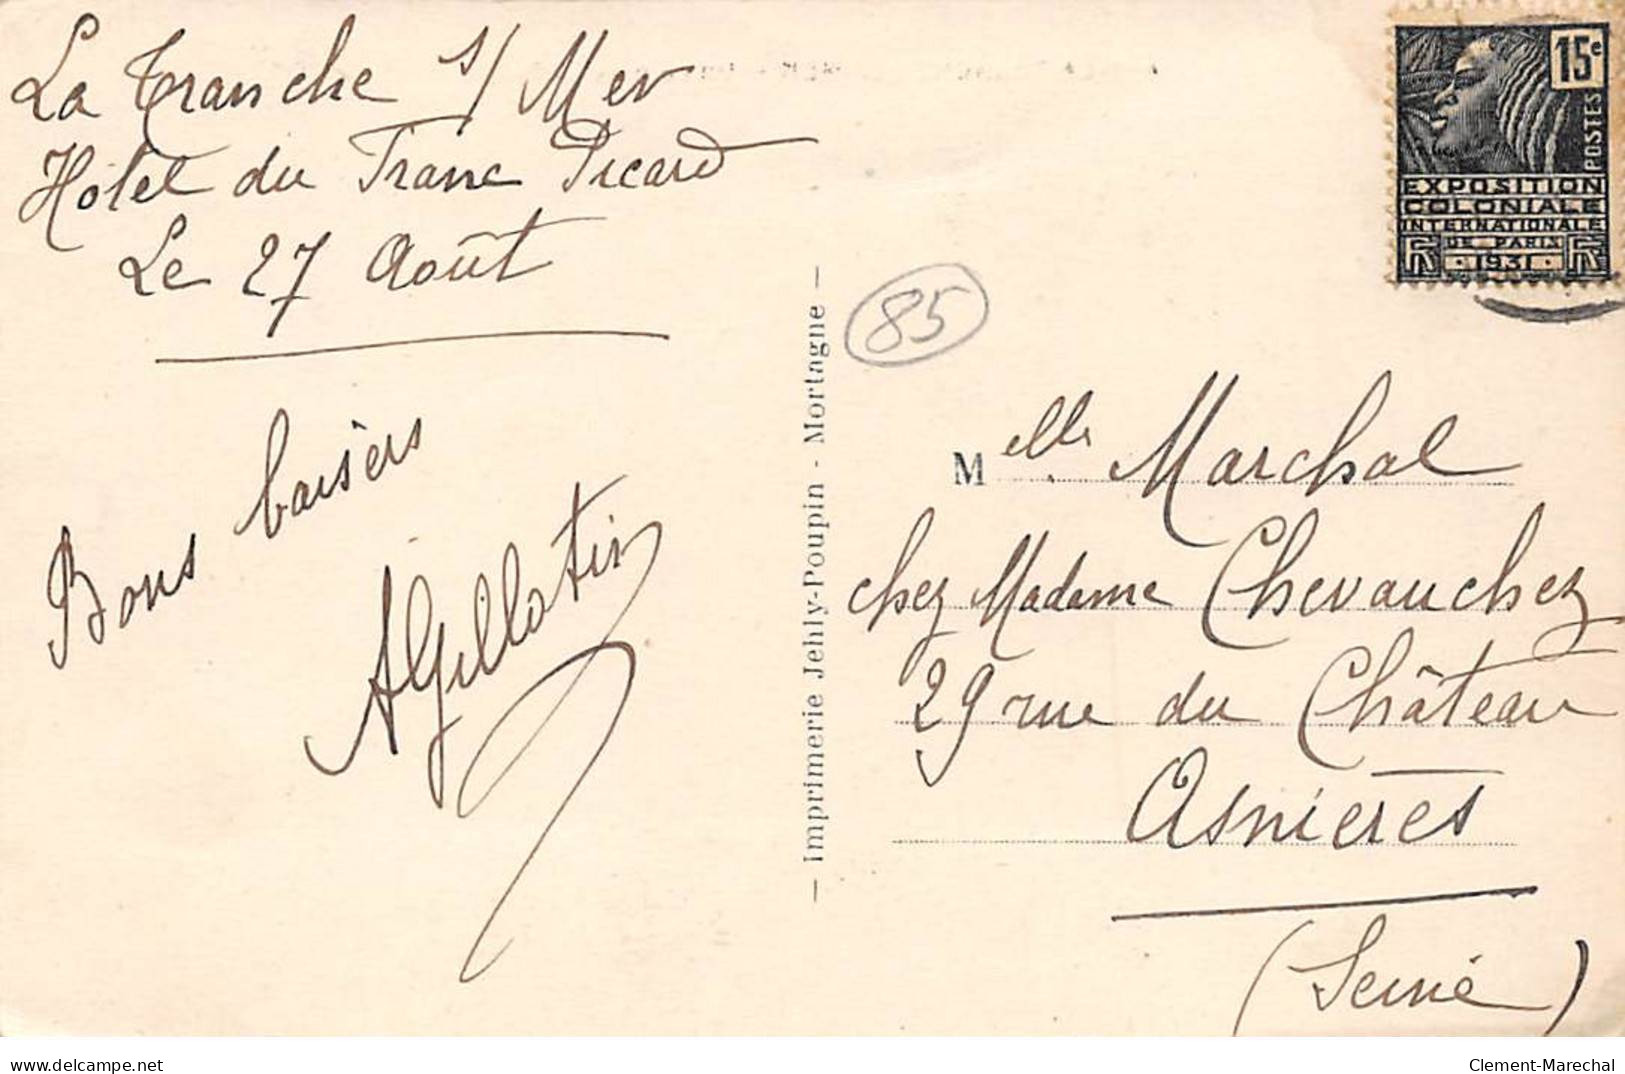 La Tranche s/ Mer
Hôtel du Franc Picard
Le 27 Août
Bons baisers
AGillotin
— Imprimerie Jehly-Poupin - Mortagne —
85
15c
POSTES
EXPOSITION
COLONIALE
INTERNATIONALE
DE PARIS
1931
Melle Marchal
chez Madame Chevauchez
29 rue du Château
Asnières
(Seine)
delcampe.net
Clement-Marechal